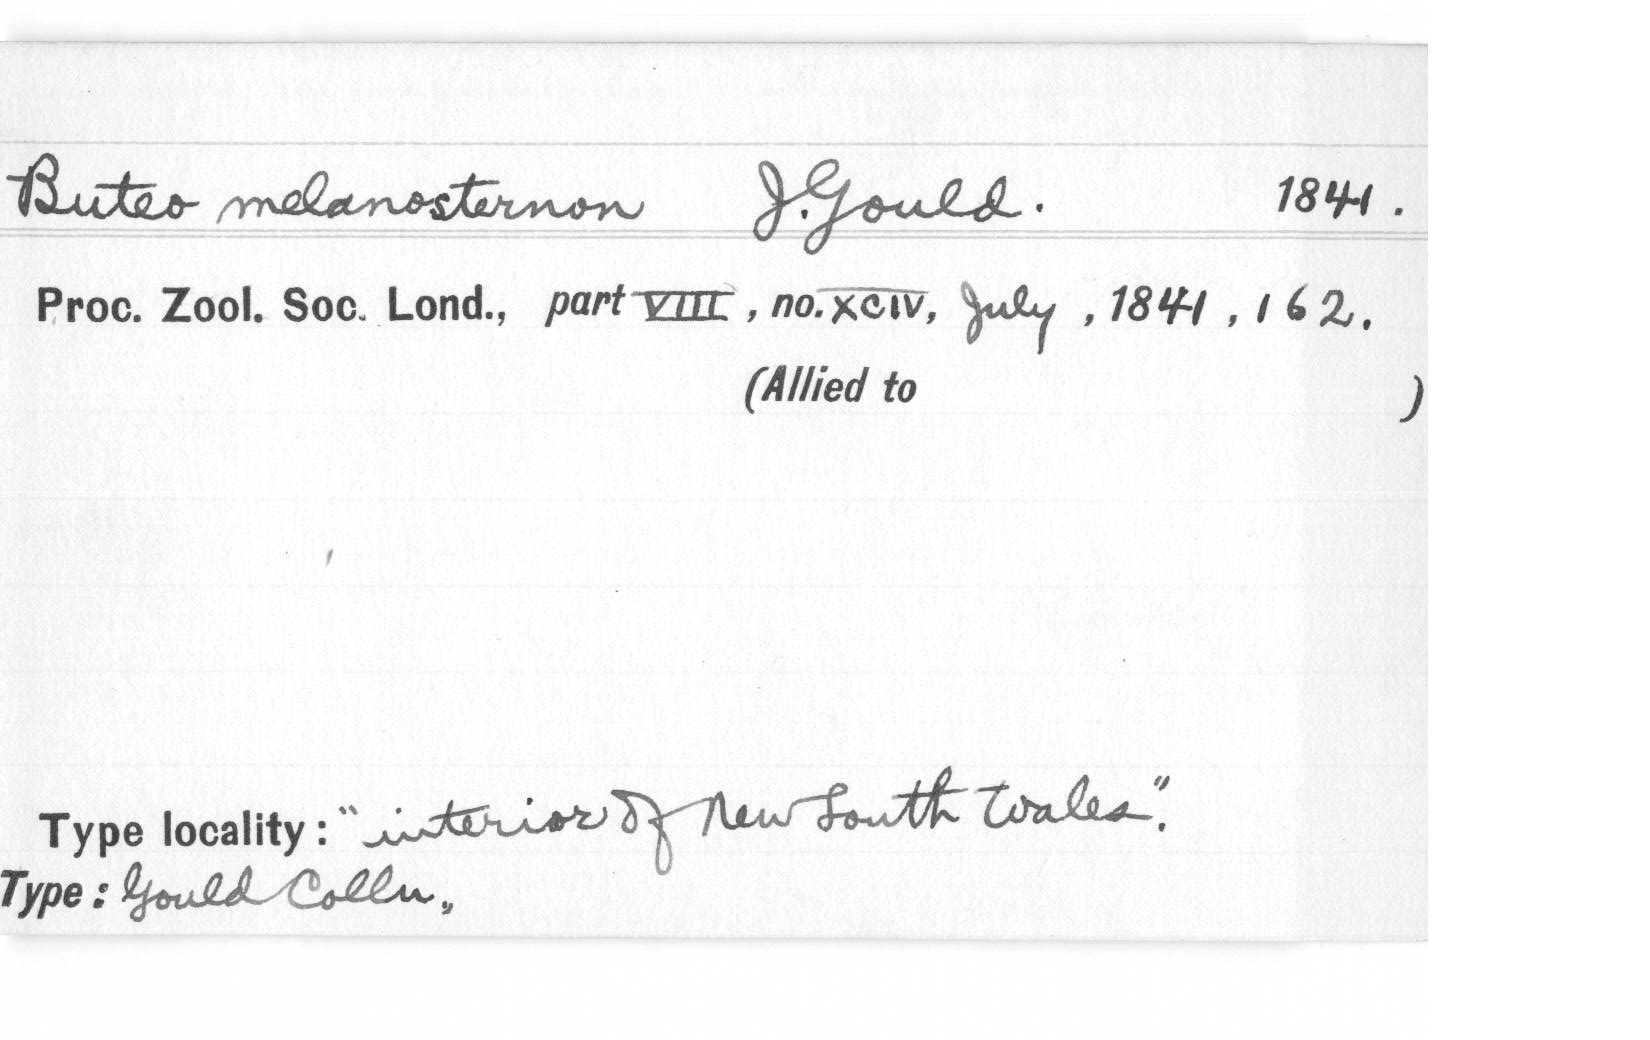 Buteo melanosternon J. Gould. 1841.
Proc. Zool. Soc. Lond., part VIII, no. XCIV, July, 1841, 162.
(Allied to )
Type locality: "interior of New South Wales".
Type: Gould Colln.,